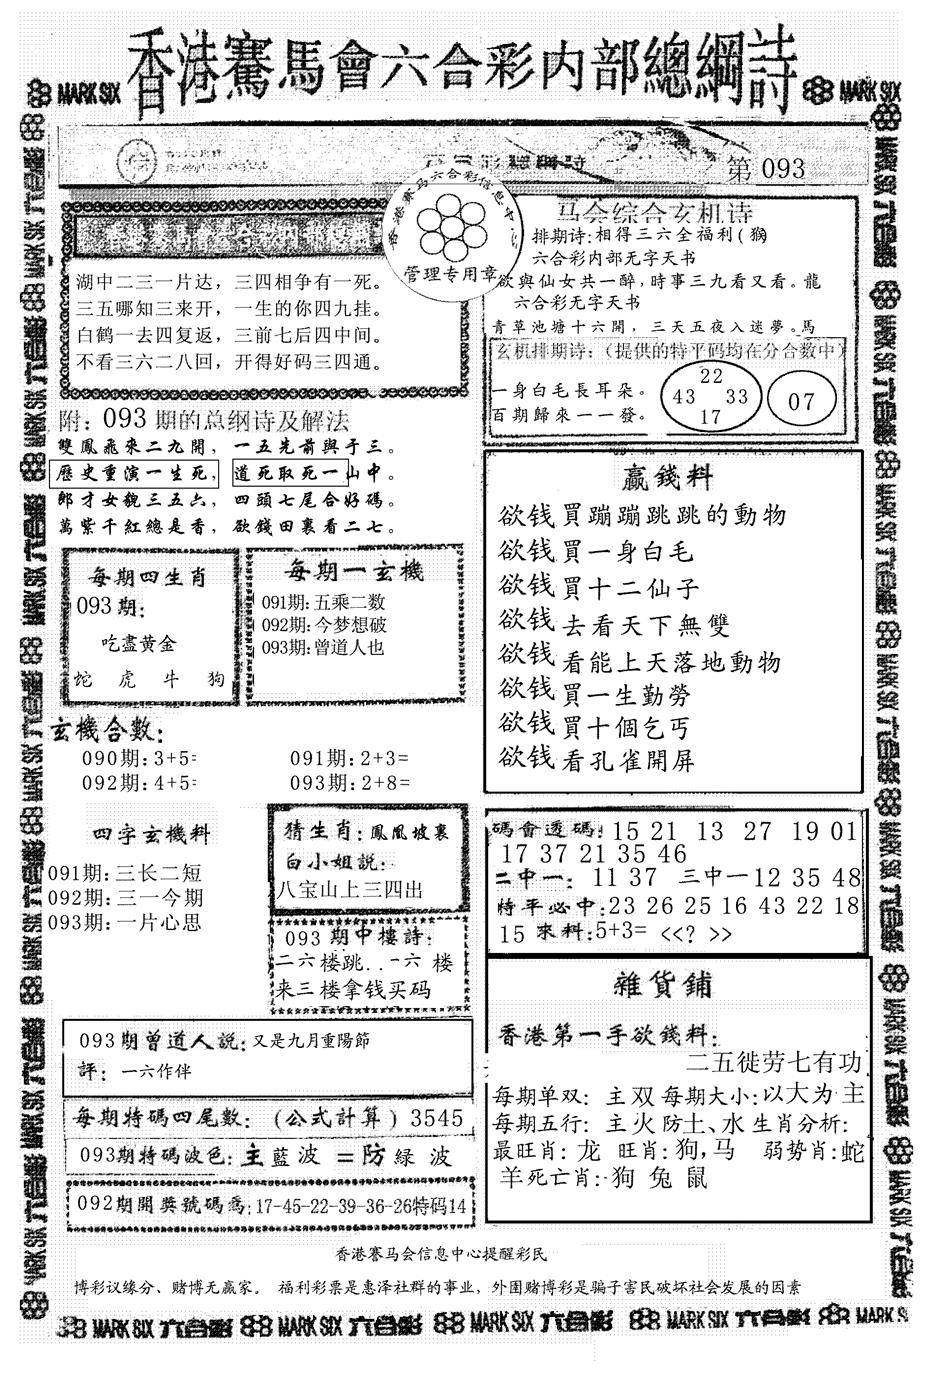 香港賽馬會六合彩内部總綱詩
MARK SIX
MARK SIX
第 093
香港赛马六合彩信息中心
管理专用章
湖中二三一片达，三四相争有一死。
三五哪知三来开，一生的你四九挂。
白鹤一去四复返，三前七后四中间。
不看三六二八回，开得好码三四通。
马会综合玄机诗
排期诗:相得三六全福利(猴
六合彩内部无字天书
欲與仙女共一醉,時事三九看又看。龍
六合彩无字天书
青草池塘十六開，三天五夜入迷夢。馬
玄机排期诗:（提供的特平码均在分合数中）
一身白毛長耳朵。
百期歸來一一發。
22
43 33
17
07
附: 093 期的总纲诗及解法
雙鳳飛來二九開， 一五先前與于三。
歷史重演一生死， 道死取死一山中。
郎才女貌三五六， 四頭七尾合好碼。
萬紫千紅總是香， 欲錢田裏看二七。
每期四生肖
093期:
吃盡黄金
蛇 虎 牛 狗
每期一玄機
091期:五乘二数
092期:今梦想破
093期:曾道人也
贏錢料
欲钱買蹦蹦跳跳的動物
欲钱買一身白毛
欲钱買十二仙子
欲钱去看天下無雙
欲钱看能上天落地動物
欲钱買一生勤勞
欲钱買十個乞丐
欲钱看孔雀開屏
玄機合數:
090期:3+5= 091期:2+3=
092期:4+5= 093期:2+8=
四字玄機料
091期:三长二短
092期:三一今期
093期:一片心思
猜生肖:鳳凰坡裏
白小姐説:
八宝山上三四出
093期中樓詩:
二六楼跳..一六 楼
来三楼拿钱买码
碼會透碼: 15 21 13 27 19 01
17 37 21 35 46
二中一: 11 37 三中一12 35 48
特平必中:23 26 25 16 43 22 18
15 來料:5+3= <<? >>
雜貨鋪
香港第一手欲錢料:
二五徙劳七有功
每期单双: 主双 每期大小:以大为主
每期五行: 主火防土、水 生肖分析:
最旺肖: 龙 旺肖:狗,马 弱势肖:蛇
羊 死亡肖:狗 兔 鼠
093期曾道人説:又是九月重陽節
評: 一六作伴
每期特碼四尾數: (公式計算) 3545
093期特碼波色:主藍波 =防緑 波
092期開獎號碼爲:17-45-22-39-36-26特码14
香港赛马会信息中心提醒彩民
博彩议缘分、赌博无赢家。 福利彩票是惠泽社群的事业，外围赌博彩是骗子害民破坏社会发展的因素
MARK SIX 六合彩 MARK SIX 六合彩 MARK SIX 六合彩 MARK SIX 六合彩 MARK SIX